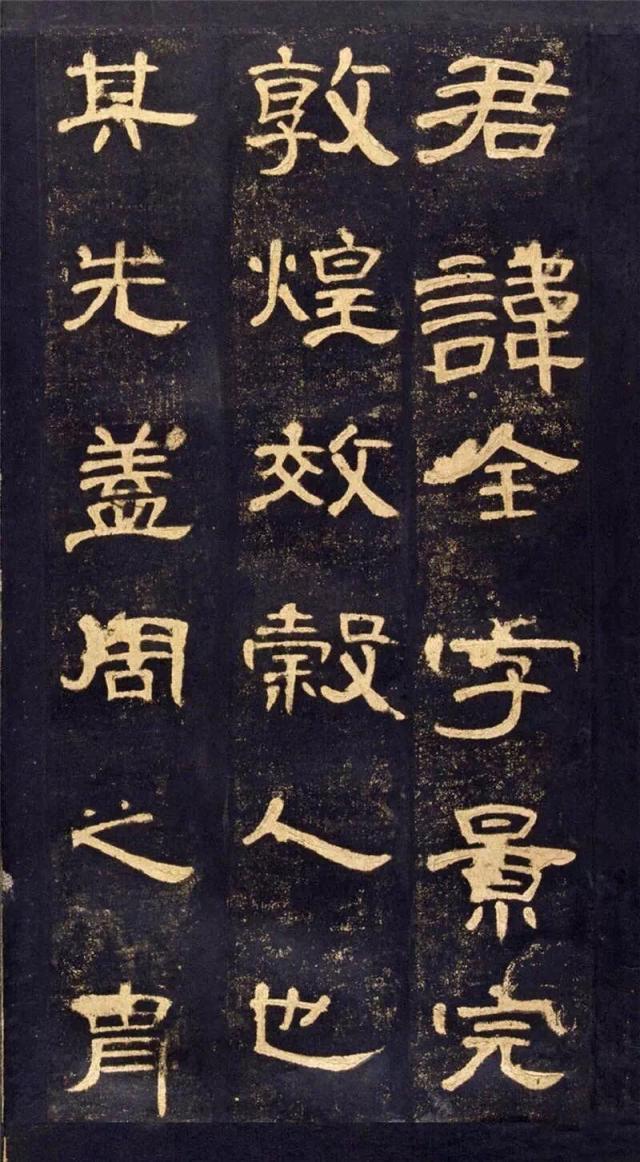 君諱全字景完
敦煌效榖人也
其先盖周之胄